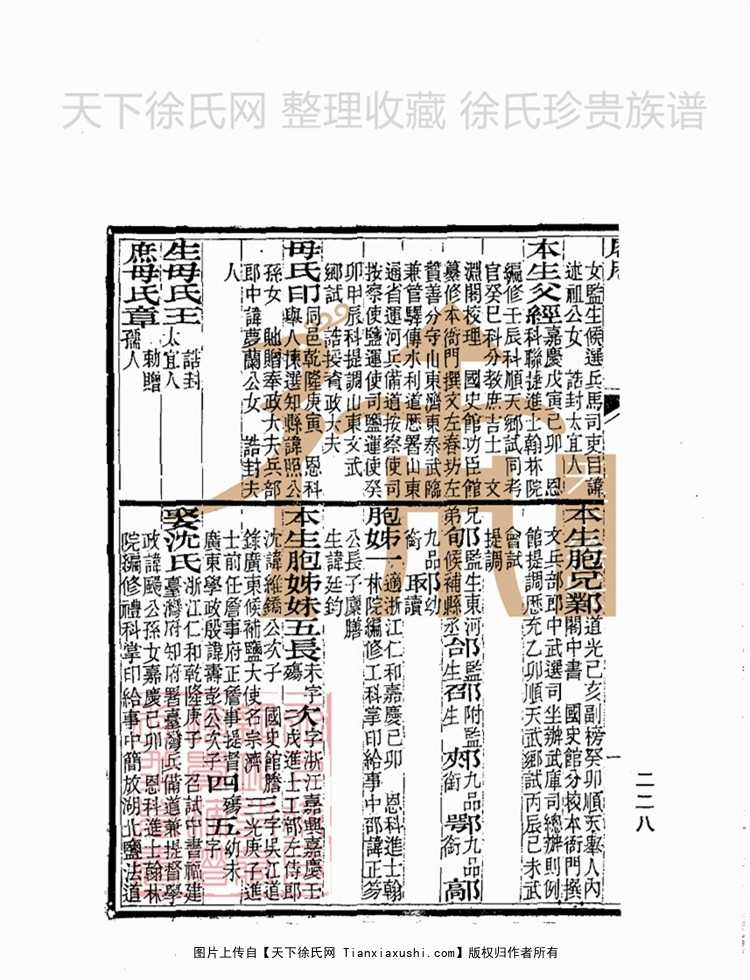 天下徐氏网 整理收藏 徐氏珍贵族谱
女監生候選兵馬司吏目諱
述祖公女 誥封太宜人
本生父經 嘉慶戊寅己卯 恩
科聯捷進士翰林院
編修壬辰科順天鄉試同考
官癸巳科分教庶吉士 文
淵閣校理 國史館功臣館
纂修本衙門撰文左春坊左
贊善分守山東濟東泰武臨
兼管驛傳水利道歷署山東
通省運河兵備道按察使司
按察使鹽運使司鹽運使癸
卯甲辰科提調山東文武
鄉試 誥授資政大夫
母氏印 同邑乾隆庚寅 恩科
舉人揀選知縣諱照公
孫女 馳贈奉政大夫兵部
郎中諱夢蘭公女 誥封夫
人
生母氏王 誥封
太宜人
庶母氏章 勅贈
孺人
本生胞兄鄴 道光己亥副榜癸卯順天舉人內
閣中書 國史館分校本衙門撰
文兵部郎中武選司坐辦武庫司總辦則例
館提調歷充乙卯順天武鄉試丙辰己未武
會試
提調
兄邴 監生東河 邰 監 附監 郟 九品 鄂 九品 鄗
弟郇 候補縣丞 生 郘 生 銜 銜
九品 邔 幼
銜 耶 讀
胞姊一 適浙江仁和嘉慶己卯 恩科進士翰
林院編修工科掌印給事中邵諱正笏
公長子廩膳
生諱廷鈞
本生胞姊妹五 長 未字 殤 次 字浙江嘉興嘉慶壬
戌進士工部左侍郎
沈諱維鐈公次子 國史館謄 三 字吳江道
錄廣東候補鹽大使名宗濟 光庚子進
士前任詹事府正詹事提督
廣東學政殷諱壽彭公次子 四 殤 五 幼未
字
娶沈氏 浙江仁和乾隆庚子 召試中書福建
臺灣府知府署臺灣兵備道兼提督學
政諱颺公孫女嘉慶己卯 恩科進士翰林
院編修禮科掌印給事中簡放湖北鹽法道
二二八
图片上传自【天下徐氏网 Tianxiaxushi.com】版权归作者所有